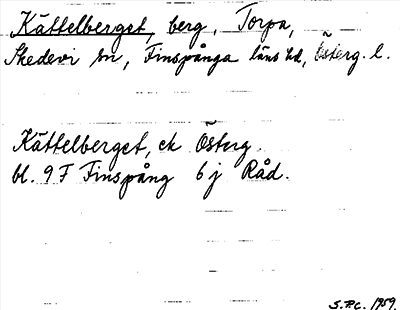 Kättelberget, berg, Torpa,
Skedevi sn, Finspånga läns hd, Österg. l.
Kättelberget, ek Österg.
bl. 9F Finspång 6j Råd.
S.P.C. 1959.